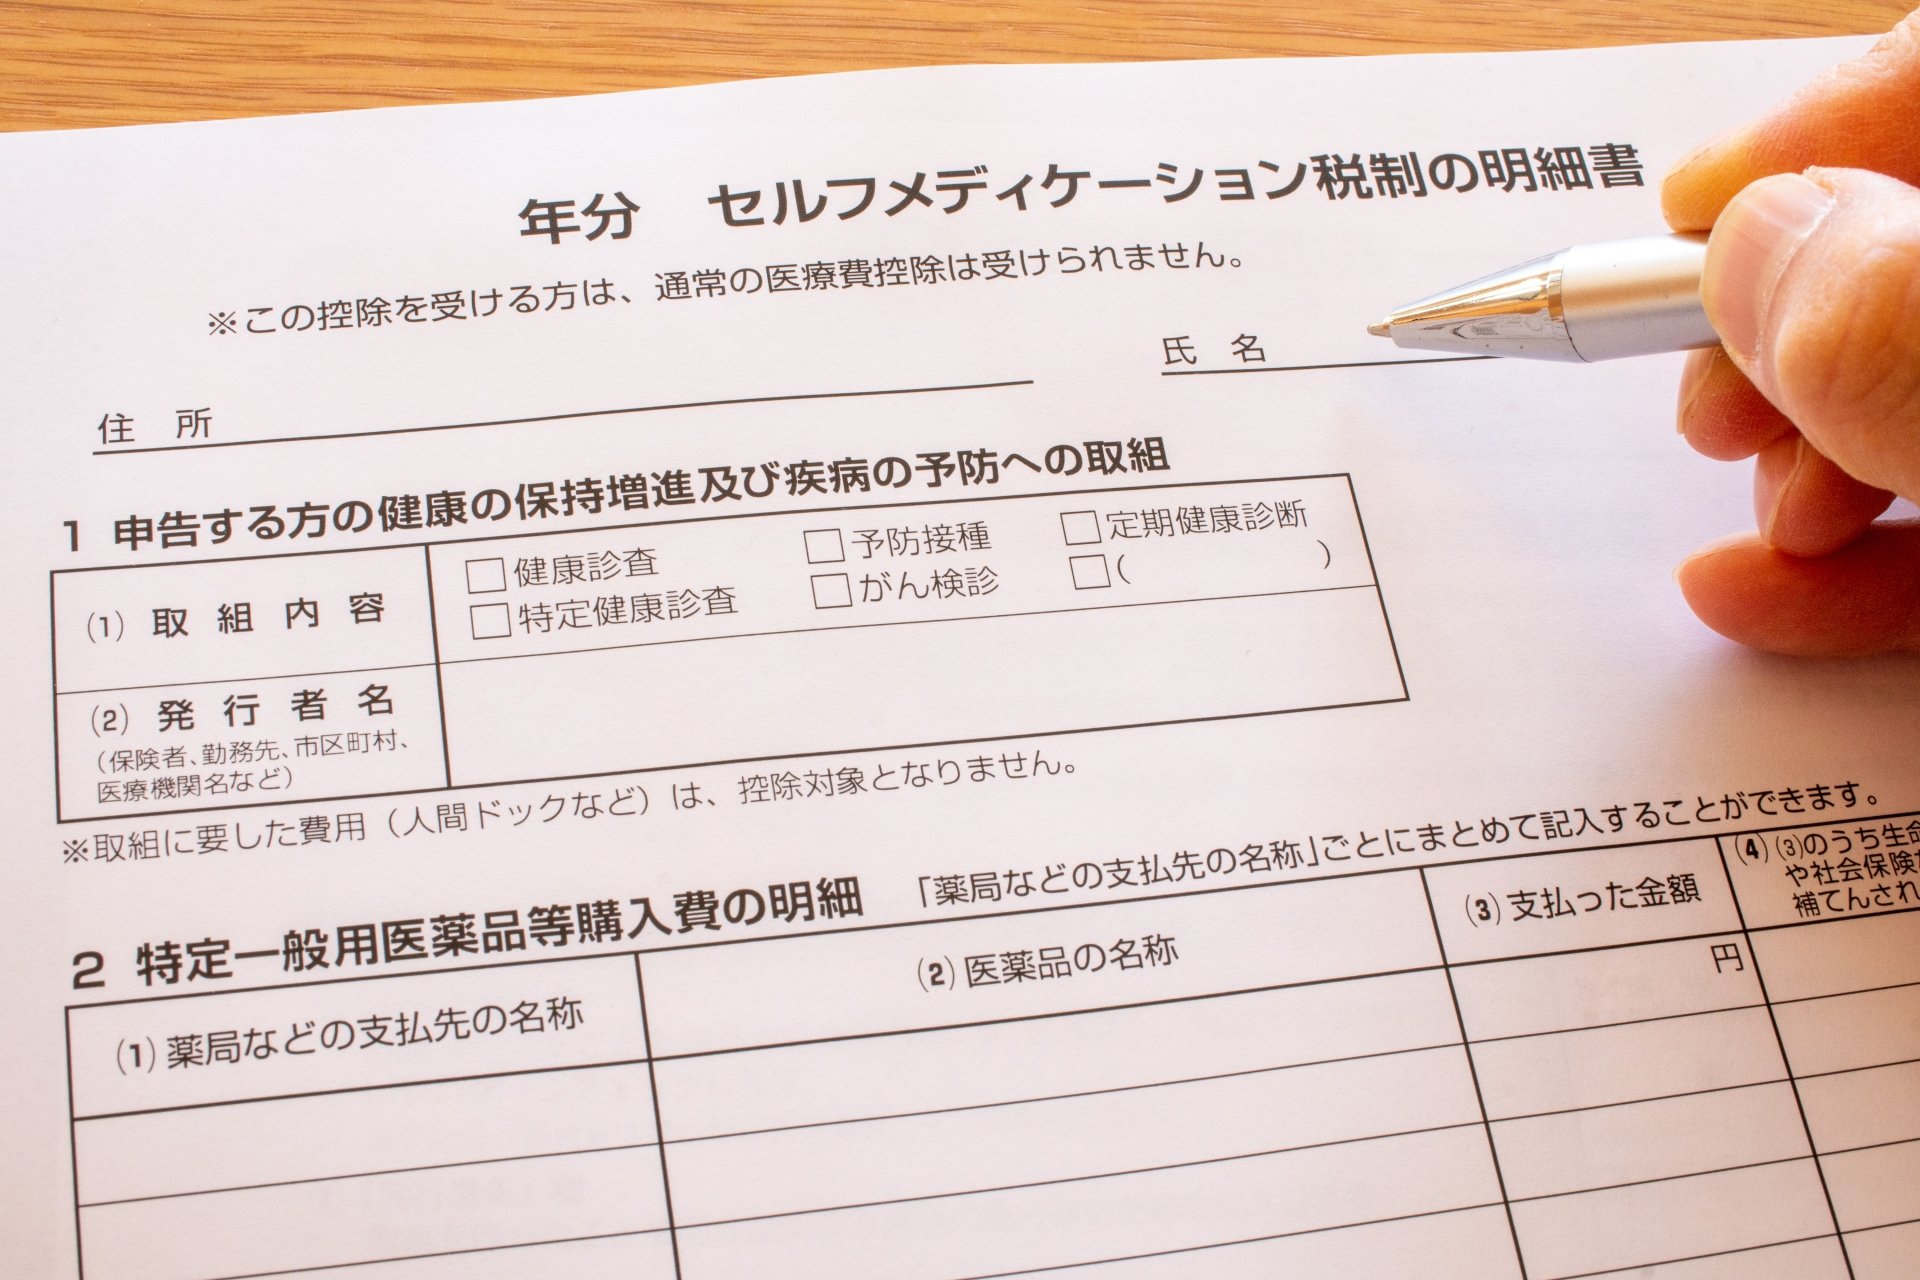 年分 セルフメディケーション税制の明細書
※この控除を受ける方は、通常の医療費控除は受けられません。
住 所
氏 名
1 申告する方の健康の保持増進及び疾病の予防への取組
(1) 取組内容
□健康診査 □予防接種 □定期健康診断
□特定健康診査 □がん検診 □( )
(2) 発行者名
(保険者、勤務先、市区町村、
医療機関名など)
※取組に要した費用(人間ドックなど)は、控除対象となりません。
2 特定一般用医薬品等購入費の明細 「薬局などの支払先の名称」ごとにまとめて記入することができます。
(1) 薬局などの支払先の名称
(2) 医薬品の名称
(3) 支払った金額
(4) (3)のうち生命
や社会保険
補てんされ
円